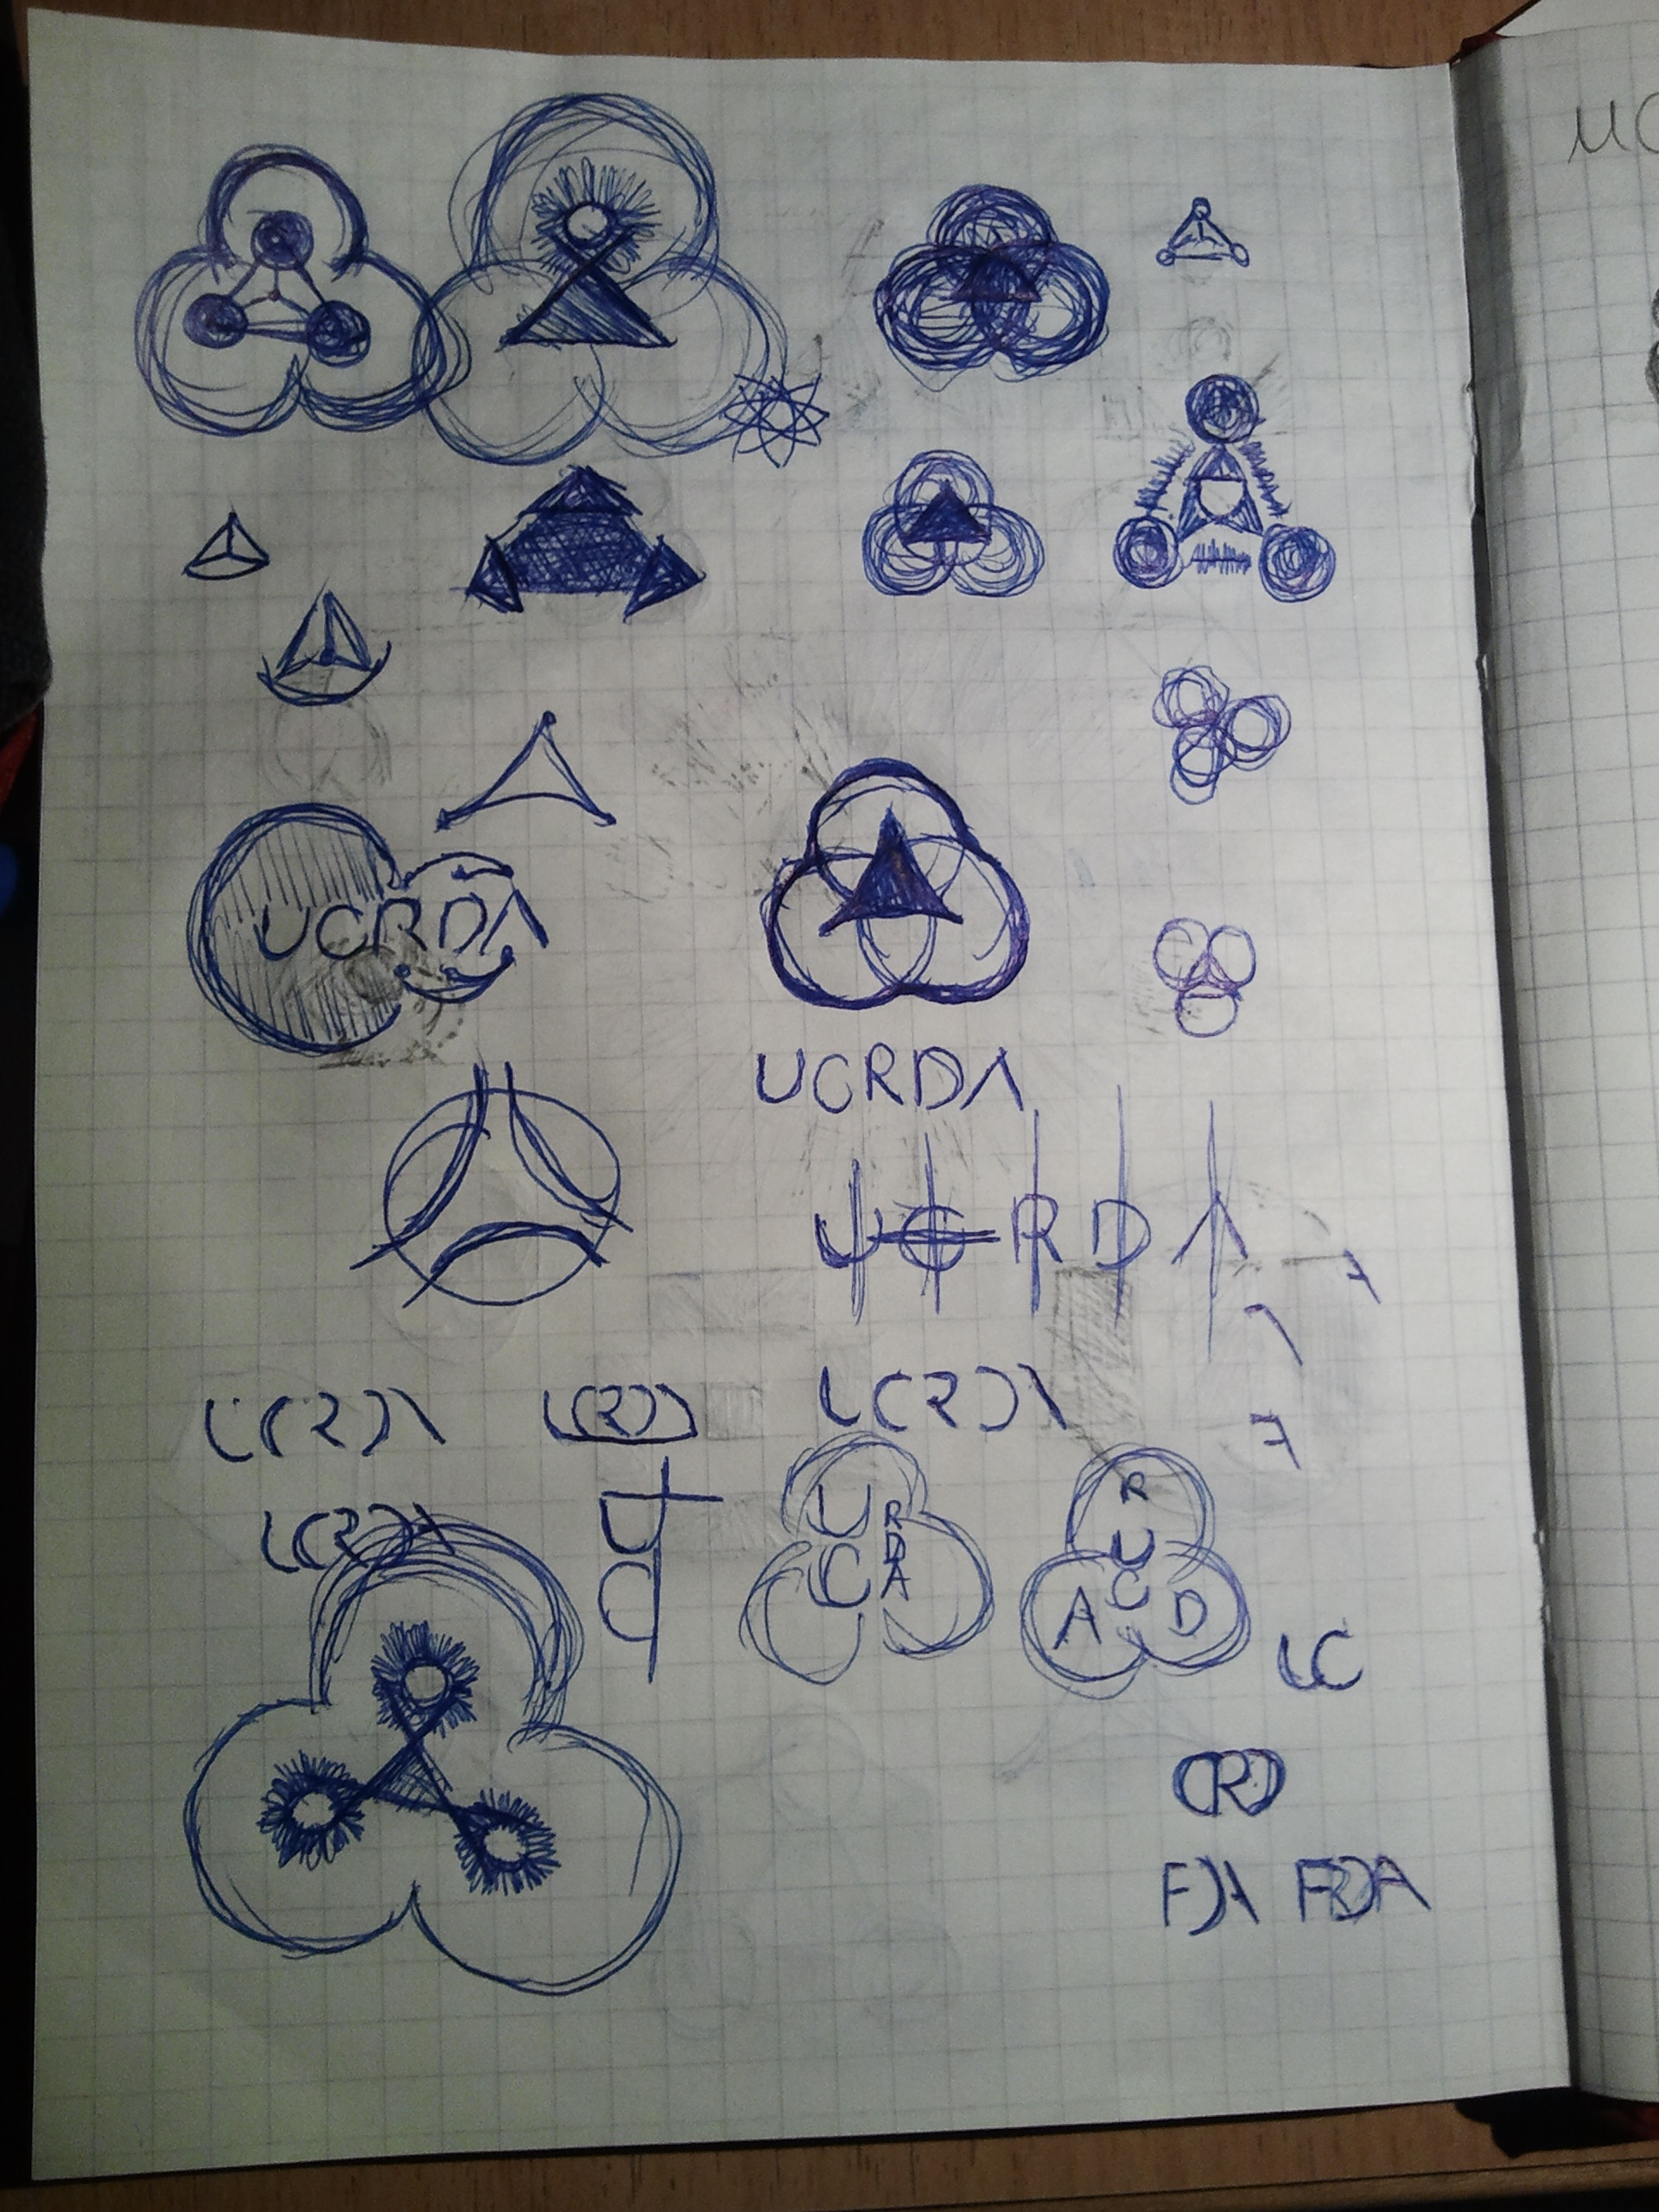 UCRDA
UCRDA
UCRDA
UCRDA
UCRDA
UCRDA
UCRDA
UC
U
C
R
D
A
R
U
C
A
D
UC
CRD
FDA FRDA